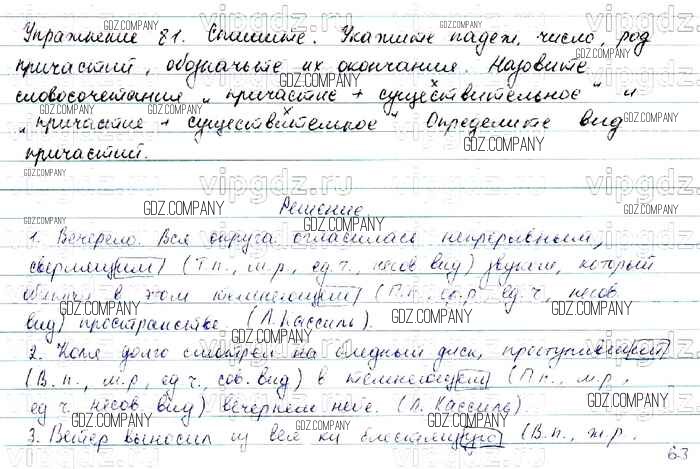 Упражнение 81. Спишите. Укажите падеж, число, род
причастий, обозначьте их окончания. Назовите
словосочетания „причастие + существительное" и
„причастие + существительное" Определите вид
причастий.
Решение
1. Вечерело. Вся округа огласилась непрерывным,
сверлящим (Т.п., м.р., ед.ч., несов вид) звуком, который
в этом (П.п., ср.р, ед.ч., несов
вид) пространстве. (Л.Кассиль).
2. Коля долго смотрел на бледный диск, проступивший
(В.п., м.р., ед.ч., сов. вид) в темнеющем (П.п., м.р.,
ед.ч. несов вид) вечернем небе. (Л. Кассиль).
3. Ветер выносил из (В.п., ж.р.
63
GDZ.COMPANY
vipgdz.ru